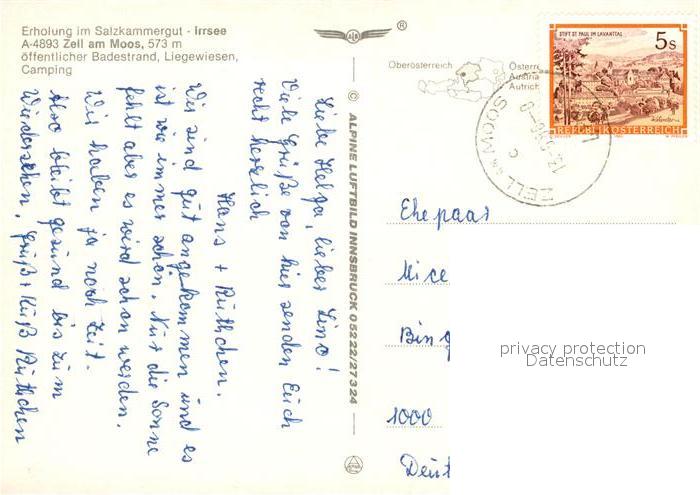 Erholung im Salzkammergut - Irrsee
A-4893 Zell am Moos, 573 m
öffentlicher Badestrand, Liegewiesen,
Camping
®
Liebe Helga, lieber Lino!
Viele Grüße von hier senden Euch
recht herzlich
Hans + Rüthchen.
Wir sind gut angekommen und es
ist wie immer schön. Nur die Sonne
fehlt aber es wird schon werden.
Wir haben ja noch Zeit.
Also bleibt gesund bis zum
Wiedersehen, Gruß + Kuß Rüthchen
© ALPINE LUFTBILD INNSBRUCK 05222/27324
Oberösterreich
Österr
Austria
Autrich
ZELL AM MOOS
STIFT ST. PAUL IM LAVANTTAL
5s
REPUBLIK ÖSTERREICH
Ehepaar
Mice
Bing
1000
Deut
privacy protection
Datenschutz